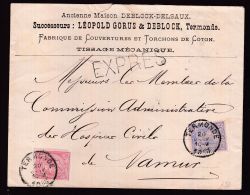 Ancienne Maison DEBLOCK-DELSAUX.
Successeurs : LÉOPOLD GORUS & DEBLOCK, Termonde.
Fabrique de Couvertures et Torchons de Coton.
TISSAGE MÉCANIQUE.
EXPRÈS
Messieurs les Membres de la
Commission Administrative
des Hospices Civils
de Namur
TERMONDE
TERMONDE